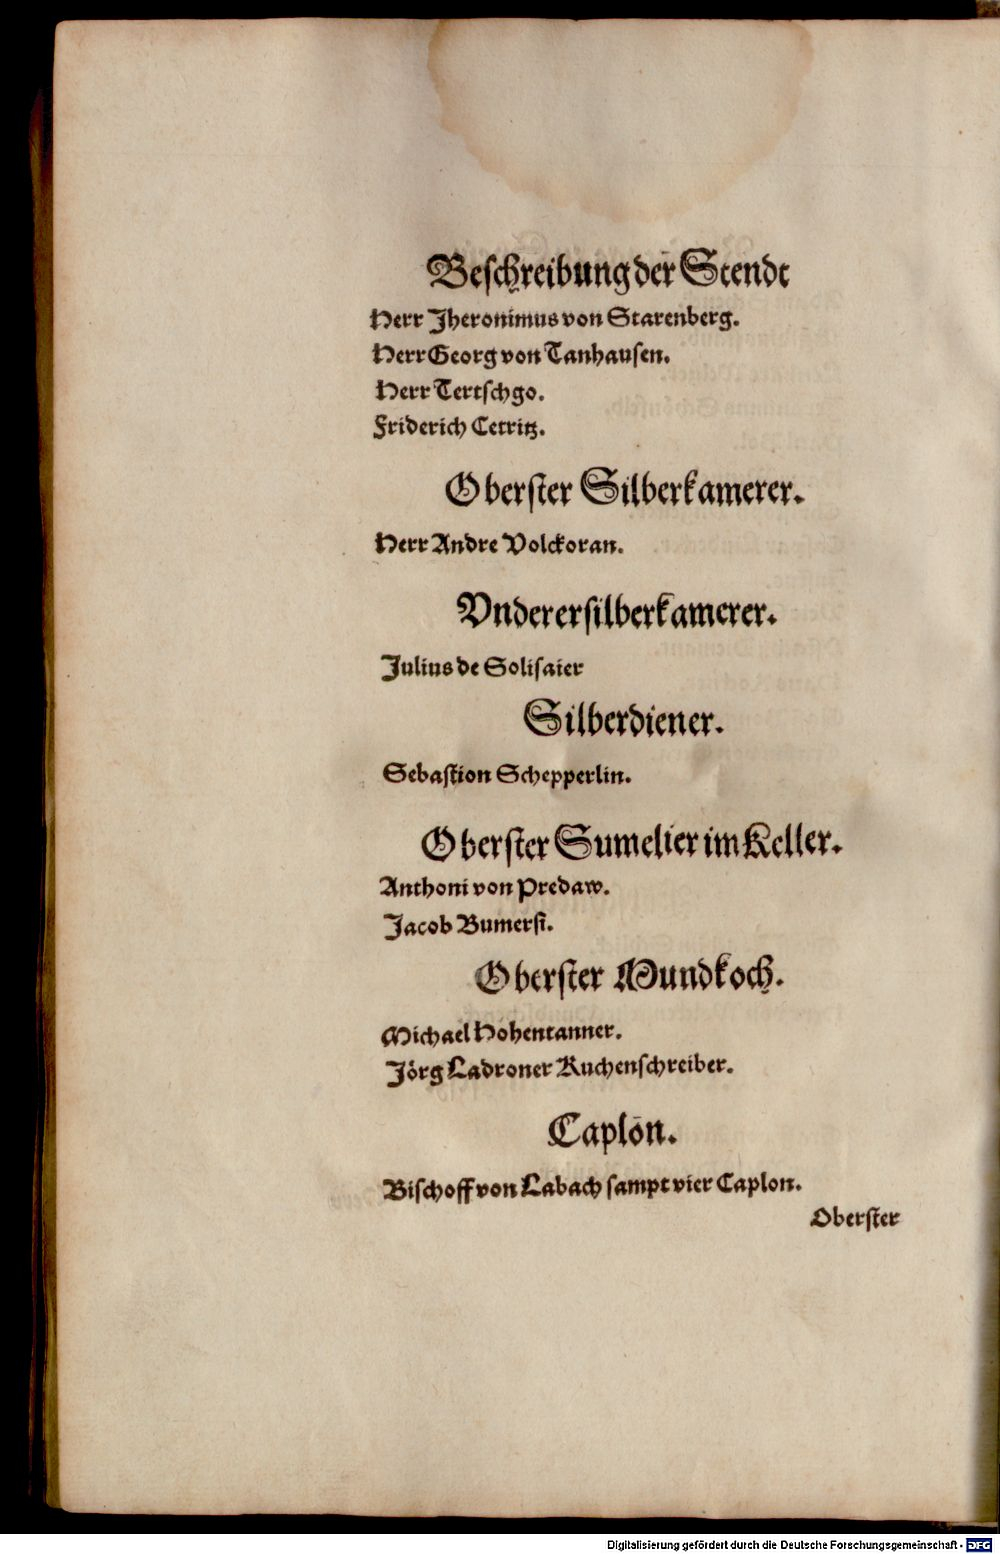 Beschreibung der Stendt
Herr Jheronimus von Starenberg.
Herr Georg von Tanhausen.
Herr Tertschgo.
Friderich Cetritz.
Oberster Silberkamerer.
Herr Andre Volckoran.
Vnderersilberkamerer.
Julius de Solisaier
Silberdiener.
Sebastion Schepperlin.
Oberster Sumelier im Keller.
Anthoni von Predaw.
Jacob Bumerst.
Oberster Mundkoch.
Michael Hohentanner.
Jörg Ladroner Kuchenschreiber.
Caplön.
Bischoff von Labach sampt vier Caplon.
Oberster
Digitalisierung gefördert durch die Deutsche Forschungsgemeinschaft - DFG